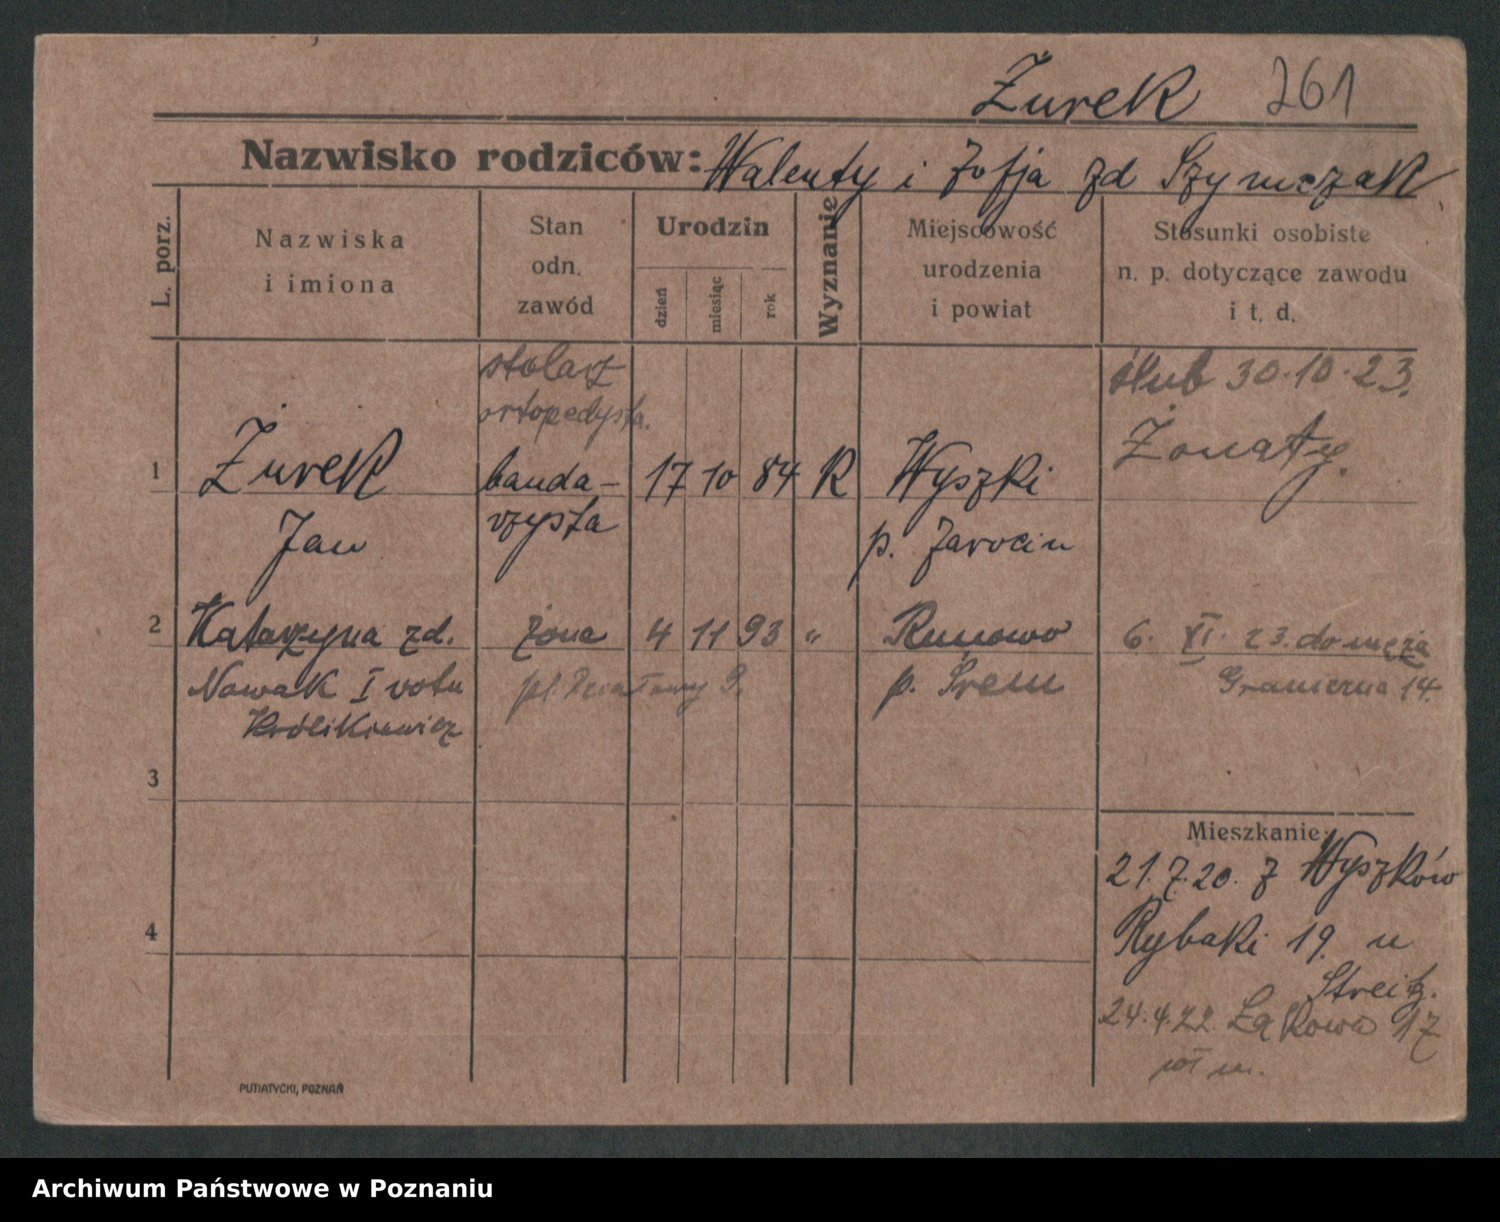 Żurek 261
Nazwisko rodziców: Walenty i Zofja zd Szymczak
L. porz.
Nazwiska
i imiona
Stan
odn.
zawód
Urodzin
dzień
miesiąc
rok
Wyznanie
Miejscowość
urodzenia
i powiat
Stosunki osobiste
n. p. dotyczące zawodu
i t. d.
stolarz
ortopedysta.
ślub 30.10.23.
Żonaty.
1 Żurek banda- 17 10 84 R Wyszki
Jan rzysta p. Jarocin
2 Katarzyna zd. żona 4 11 93 " Runowo 6. XI. 23. do męża
Nowak I votu pl. Działowy 9. p. Śrem Graniczna 14.
Królikiewicz
3
Mieszkanie:
21.7.20. z Wyszków
4 Rybaki 19. u
Streitz.
24.4.22. Łąkowa 17
PUTIATYCKI, POZNAŃ